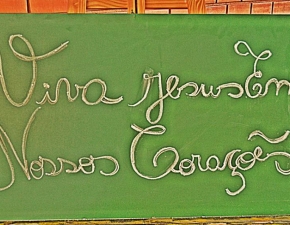 Viva Jesus Em
Nossos Corações